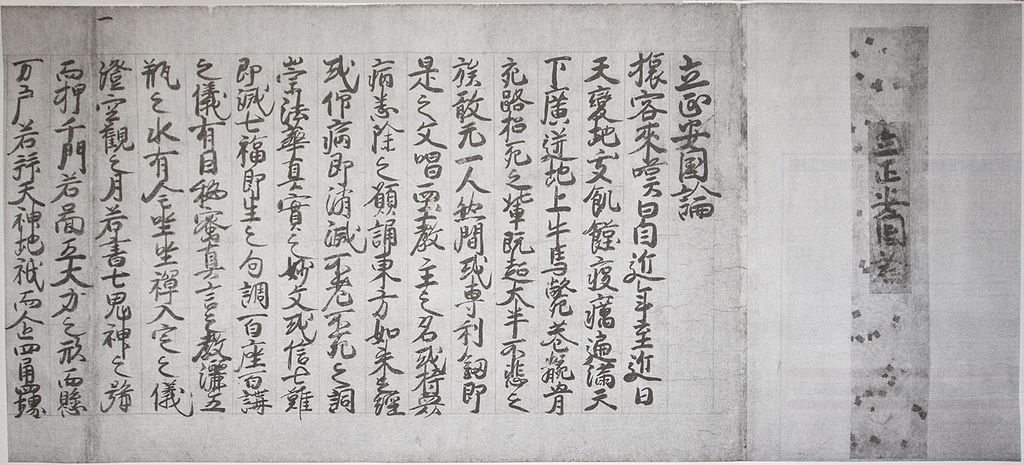 立正安国論
立正安国論
旅客来嘆曰自近年至近日
天変地夭飢饉疫癘遍満天
下広迸地上牛馬斃巷骸骨
充路招死之輩既超大半不悲之
族敢无一人然間或専利剣即
是之文唱西土教主之名或持衆
病悉除之願誦東方如来之経
或仰病即消滅不老不死之詞
崇法華真実之妙文或信七難
即滅七福即生之句調百座百講
之儀有因秘密真言之教灑五
瓶之水有全坐禅入定之儀
澄空観之月若書七鬼神之号
而押千門若図五大力之形而懸
万戸若拝天神地祇而企四角四堺
一